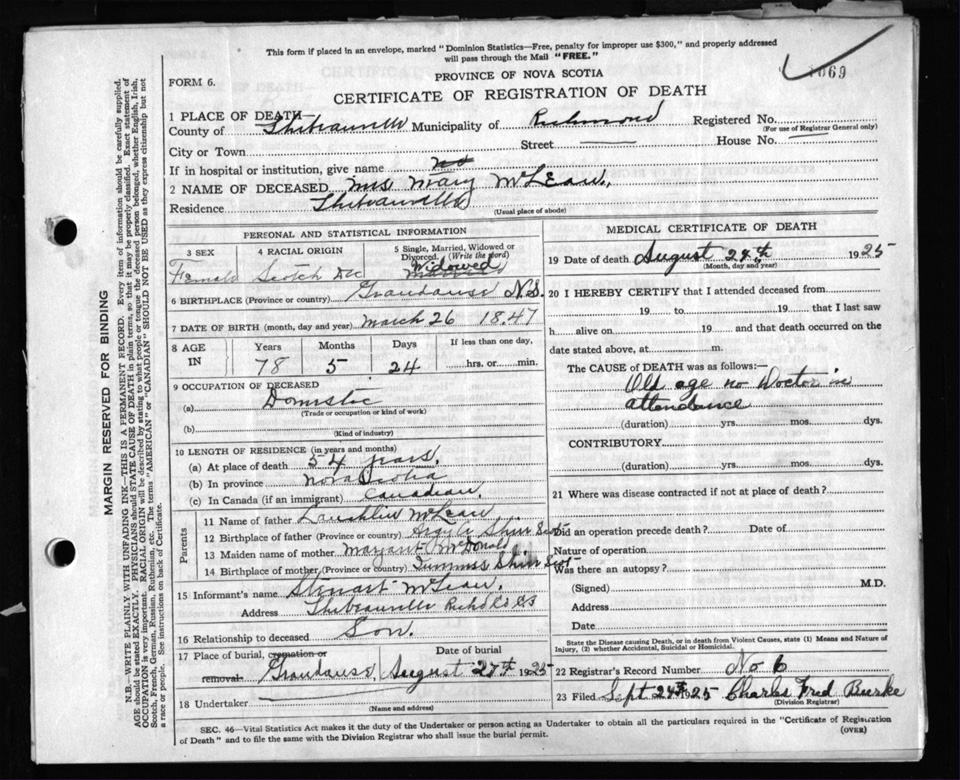 This form if placed in an envelope, marked "Dominion Statistics—Free, penalty for improper use $300," and properly addressed
will pass through the Mail "FREE."
PROVINCE OF NOVA SCOTIA
FORM 6.
CERTIFICATE OF REGISTRATION OF DEATH
1 PLACE OF DEATH—
County of Thibeauville Municipality of Richmond Registered No.
(For use of Registrar General only)
City or Town Street House No.
If in hospital or institution, give name no
2 NAME OF DECEASED Mrs Mary McLean,
Residence Thibeauville
(Usual place of abode)
PERSONAL AND STATISTICAL INFORMATION
3 SEX 4 RACIAL ORIGIN 5 Single, Married, Widowed or
Divorced. (Write the word)
Female Scotch Widowed
6 BIRTHPLACE (Province or country) Grandanse N.S.
7 DATE OF BIRTH (month, day and year) March 26 1847
8 AGE IN Years Months Days If less than one day,
78 5 24 hrs. or min.
9 OCCUPATION OF DECEASED
(a) Domestic
(Trade or occupation or kind of work)
(b)
(Kind of industry)
10 LENGTH OF RESIDENCE (in years and months)
(a) At place of death 54 years,
(b) In province Nova Scotia
(c) In Canada (if an immigrant) Canadian,
Parents
11 Name of father Lauchlin McLean
12 Birthplace of father (Province or country)
13 Maiden name of mother Margaret McDonald
14 Birthplace of mother (Province or country)
15 Informant's name Stewart McLean,
Address Thibeauville
16 Relationship to deceased Son.
17 Place of burial, cremation or Date of burial
removal. Grandanse, August 27th 1925
18 Undertaker
(Name and address)
MEDICAL CERTIFICATE OF DEATH
19 Date of death August 24th 1925
(Month, day and year)
20 I HEREBY CERTIFY that I attended deceased from
19 to 19 that I last saw
h alive on 19 and that death occurred on the
date stated above, at m.
The CAUSE of DEATH was as follows:—
Old age no Doctor in
attendance
(duration) yrs. mos. dys.
CONTRIBUTORY
(duration) yrs. mos. dys.
21 Where was disease contracted if not at place of death?
Did an operation precede death? Date of
Nature of operation
Was there an autopsy?
(Signed) M.D.
Address
Date
State the Disease causing Death, or in death from Violent Causes, state (1) Means and Nature of
Injury, (2) whether Accidental, Suicidal or Homicidal.
22 Registrar's Record Number No 6
23 Filed Sept 24th 1925 Charles Fred Burke
(Division Registrar)
SEC. 46—Vital Statistics Act makes it the duty of the Undertaker or person acting as Undertaker to obtain all the particulars required in the "Certificate of Registration
of Death" and to file the same with the Division Registrar who shall issue the burial permit.
(OVER)
MARGIN RESERVED FOR BINDING
N.B.—WRITE PLAINLY WITH UNFADING INK—THIS IS A PERMANENT RECORD. Every item of information should be carefully supplied.
AGE should be stated EXACTLY. PHYSICIANS should STATE CAUSE OF DEATH in plain terms, so that it may be properly classified. Exact statement of
OCCUPATION is very important. RACIAL ORIGIN will be described by stating to what people or tongue the deceased person belonged, whether English, Irish,
Scotch, French, German, Russian, Ruthenian, etc. The terms "AMERICAN" or "CANADIAN" SHOULD NOT BE USED as they express citizenship but not
a race or people. See instructions on back of Certificate.